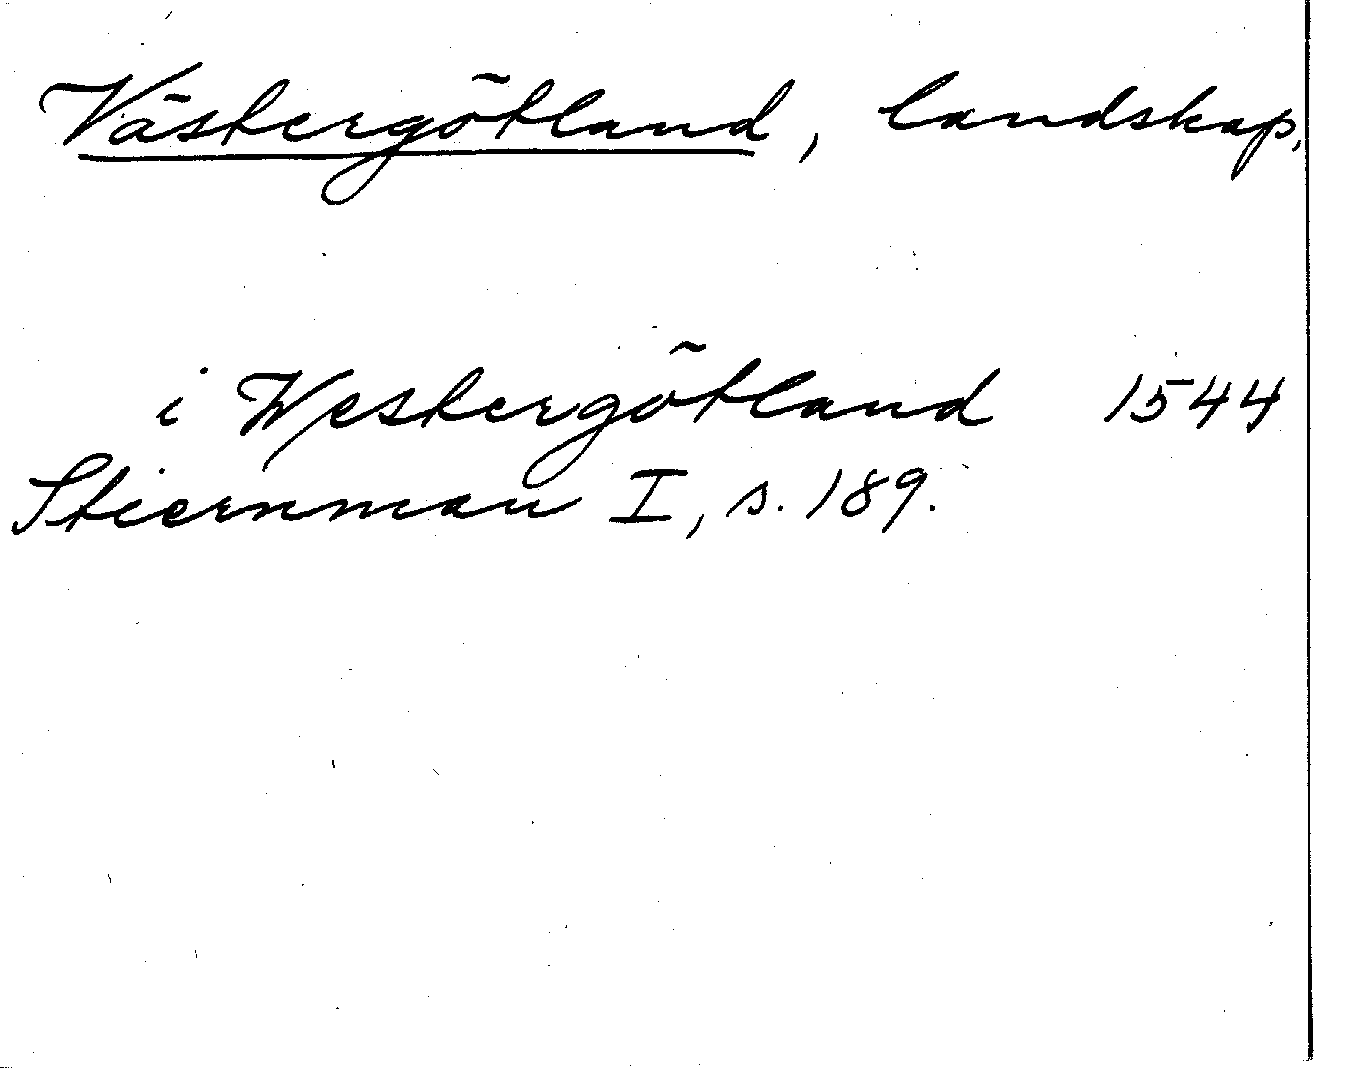 Västergötland, landskap,
i Westergötland 1544
Stiernman I, s. 189.